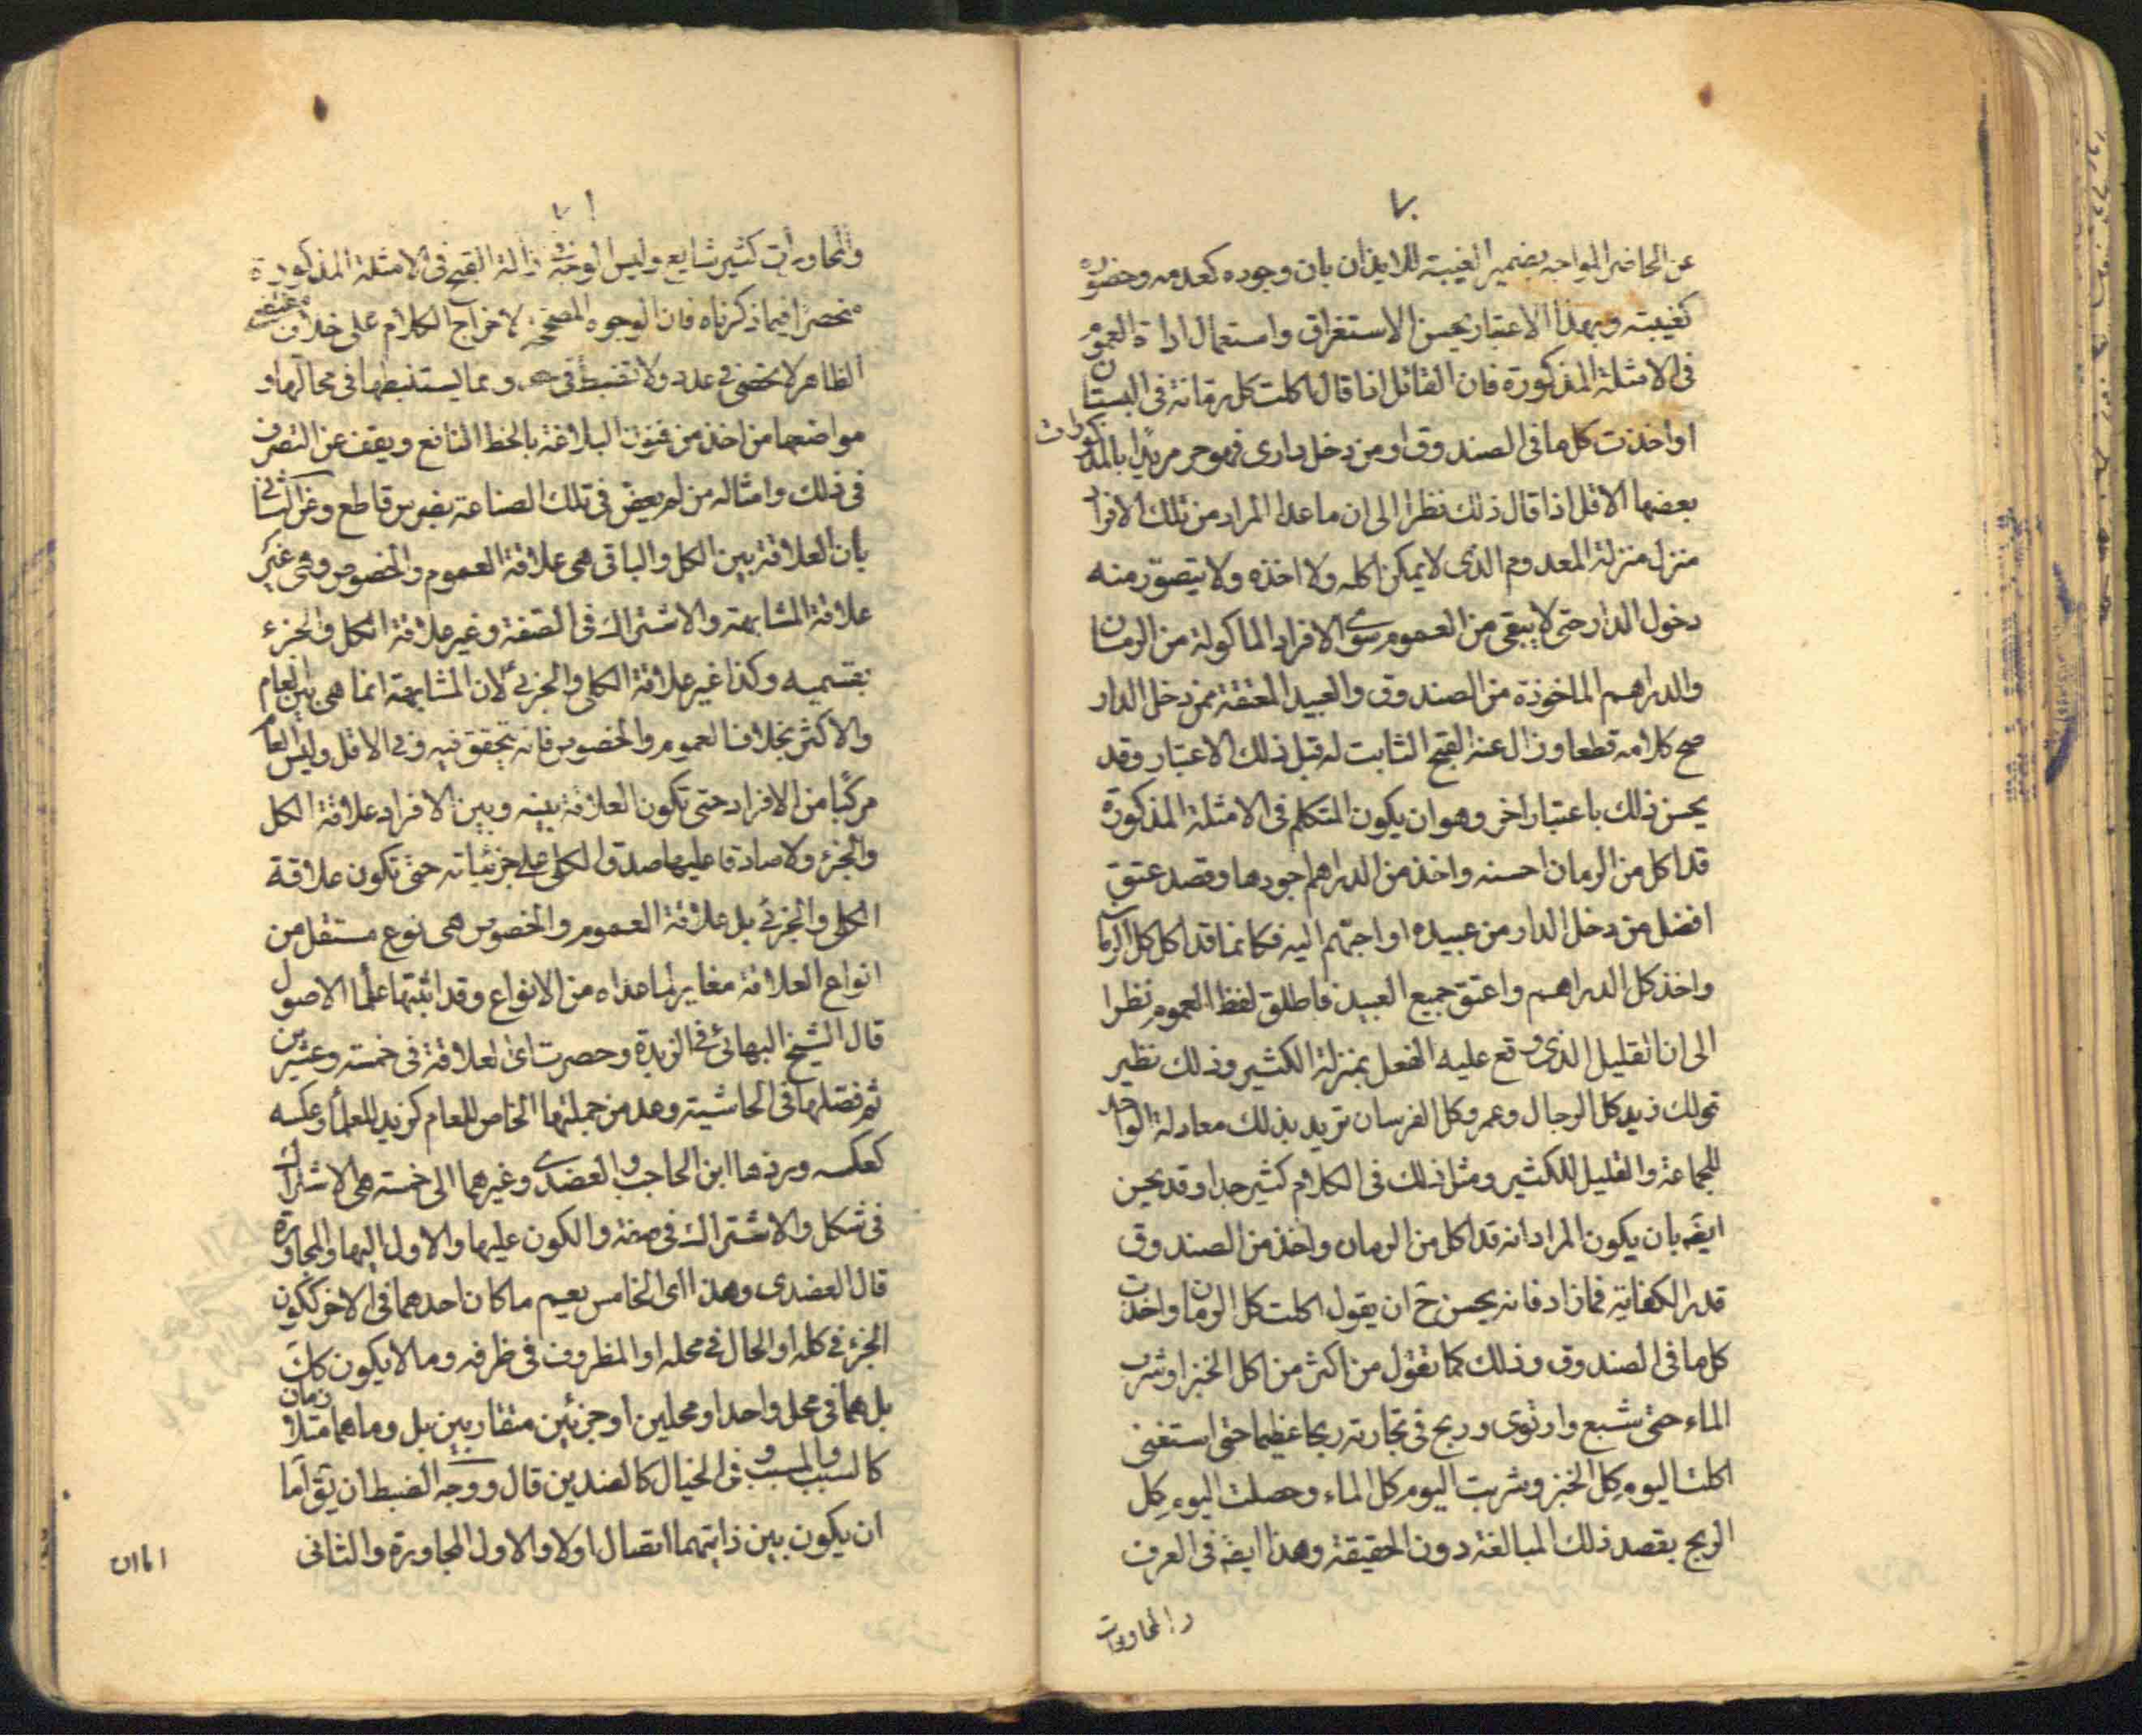 ٧٠
عن الحاضر المواجه بضمير الغيبة للايذان بان وجوده كعدمه وحضوره
كغيبته وبهذا الاعتبار يحسن الاستغراق واستعمال اداة العموم
فى الامثلة المذكورة فان القائل اذا قال اكلت كل رمانة فى البستان
او اخذت كل ما فى الصندوق او من دخل دارى فهو حر مريدا بالمذكورات
بعضها الاقل اذا قال ذلك نظرا الى ان ما عدا المراد من تلك الافراد
منزل منزلة المعدوم الذى لا يمكن اكله ولا اخذه ولا يتصور منه
دخول الدار حتى لا يبقى من العموم سوى الافراد الماكولة من الرمان
والدراهم الماخوذة من الصندوق والعبيد المعتقة ممن دخل الدار
صح كلامه قطعا وزال عنه القبح الثابت له قبل ذلك الاعتبار وقد
يحسن ذلك باعتبار اخر وهو ان يكون المتكلم فى الامثلة المذكورة
قد اكل من الرمان احسنه واخذ من الدراهم اجودها وقصد عتق
افضل من دخل الدار من عبيده او احبهم اليه فكانما قد اكل كل الرمان
واخذ كل الدراهم واعتق جميع العبيد فاطلق لفظ العموم نظرا
الى ان القليل الذى وقع عليه الفعل بمنزلة الكثير وذلك نظير
قولك زيد كل الرجال وعمرو كل الفرسان تريد بذلك معادلة الواحد
للجماعة والقليل للكثير ومثل ذلك فى الكلام كثير جدا وقد يحسن
ايضه بان يكون المراد انه قد اكل من الرمان واخذ من الصندوق
قدر الكفاية فما زاد فانه يحسن ح ان يقول اكلت كل الرمان واخذت
كل ما فى الصندوق وذلك كما تقول من اكثر من اكل الخبز او شرب
الماء حتى شبع وارتوى وربح فى تجارته ربحا عظيما حتى استغنى
اكلت اليوم كل الخبز وشربت اليوم كل الماء وحصلت اليوم كل
الربح بقصد ذلك المبالغة دون الحقيقة وهذا ايضه فى العرف
والمحاورات
٧١
والمحاورات كثير شايع وليس الوجه فى ازالة القبح فى الامثلة المذكورة
منحصرا فيما ذكرناه فان الوجوه المصححه لاخراج الكلام على خلاف مقتضى
الظاهر لا تحصى فى عدد ولا تنضبط فى حد وبما يستنبطها فى محالها و
مواضعها من اخذ من فنون البلاغة بالحظ النافع ويقف عن التصرف
فى ذلك وامثاله من لم يعض فى تلك الصناعة بضرس قاطع وعن الثانى
بان العلاقة بين الكل والباقى هى علاقة العموم والخصوص وهى غير
علاقة المشابهة والاشتراك فى الصفة وغير علاقة الكل والجزء
بقسميه وكذا غير علاقة الكلى والجزئى لان المشابهة انما هى بين العام
والاكثر بخلاف العموم والخصوص فانه يتحقق فيه وفى الاقل وليس العام
مركبا من الافراد حتى تكون العلاقة بينه وبين الافراد علاقة الكل
والجزء ولا صادقا عليها صدق الكلى على جزئياته حتى تكون علاقة
الكلى والجزئى بل علاقة العموم والخصوص هى نوع مستقل من
انواع العلاقة مغاير لما عداه من الانواع وقد اثبتها علما الاصول
قال الشيخ البهائى فى الزبدة وحصرت اى العلاقة فى خمسة وعشرين
ثم فصلها فى الحاشية وعد من جملتها الخاص للعام كزيد للعلما وعكسه
كعكسه وردها ابن الحاجب والعضدى وغيرهما الى خمسة هى الاشتراك
فى شكل والاشتراك فى صفة والكون عليها والاول اليها والمجاورة
قال العضدى وهذا اى الخامس يعم ما كان احدهما فى الاخر ككون
الجزء فى كله او الحال فى محله او المظروف فى ظرفه وما لا يكون كك
بل هما فى محل واحد او محلين او جزئين متقاربين بل وما هما متلازمان
كالسبب والمسبب وفى الخيال كالضدين قال ووجه الضبط ان يق اما
ان يكون بين ذاتيهما اتصال اولا والاول المجاورة والثانى
اما ان